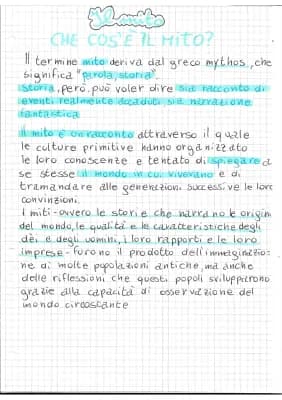 Il mito
CHE COS'È IL MITO?
Il termine mito deriva dal greco mythos, che
significa "parola, storia".
Storia, però, può voler dire sia racconto di
eventi realmente accaduti, sia narrazione
fantastica
Il mito è un racconto attraverso il quale
le culture primitive hanno organizzato
le loro conoscenze e tentato di spiegare a
se stesse il mondo in cui vivevano e di
tramandare alle generazioni successive le loro
convinzioni.
I miti-ovvero le storie che narrano le origini
del mondo, le qualità e le caratteristiche degli
dèi e degli uomini, i loro rapporti e le loro
imprese-furono il prodotto dell'immaginazio-
ne di molte popolazioni antiche, ma anche
delle riflessioni che questi popoli svilupparono
grazie alla capacità di osservazione del
mondo circostante